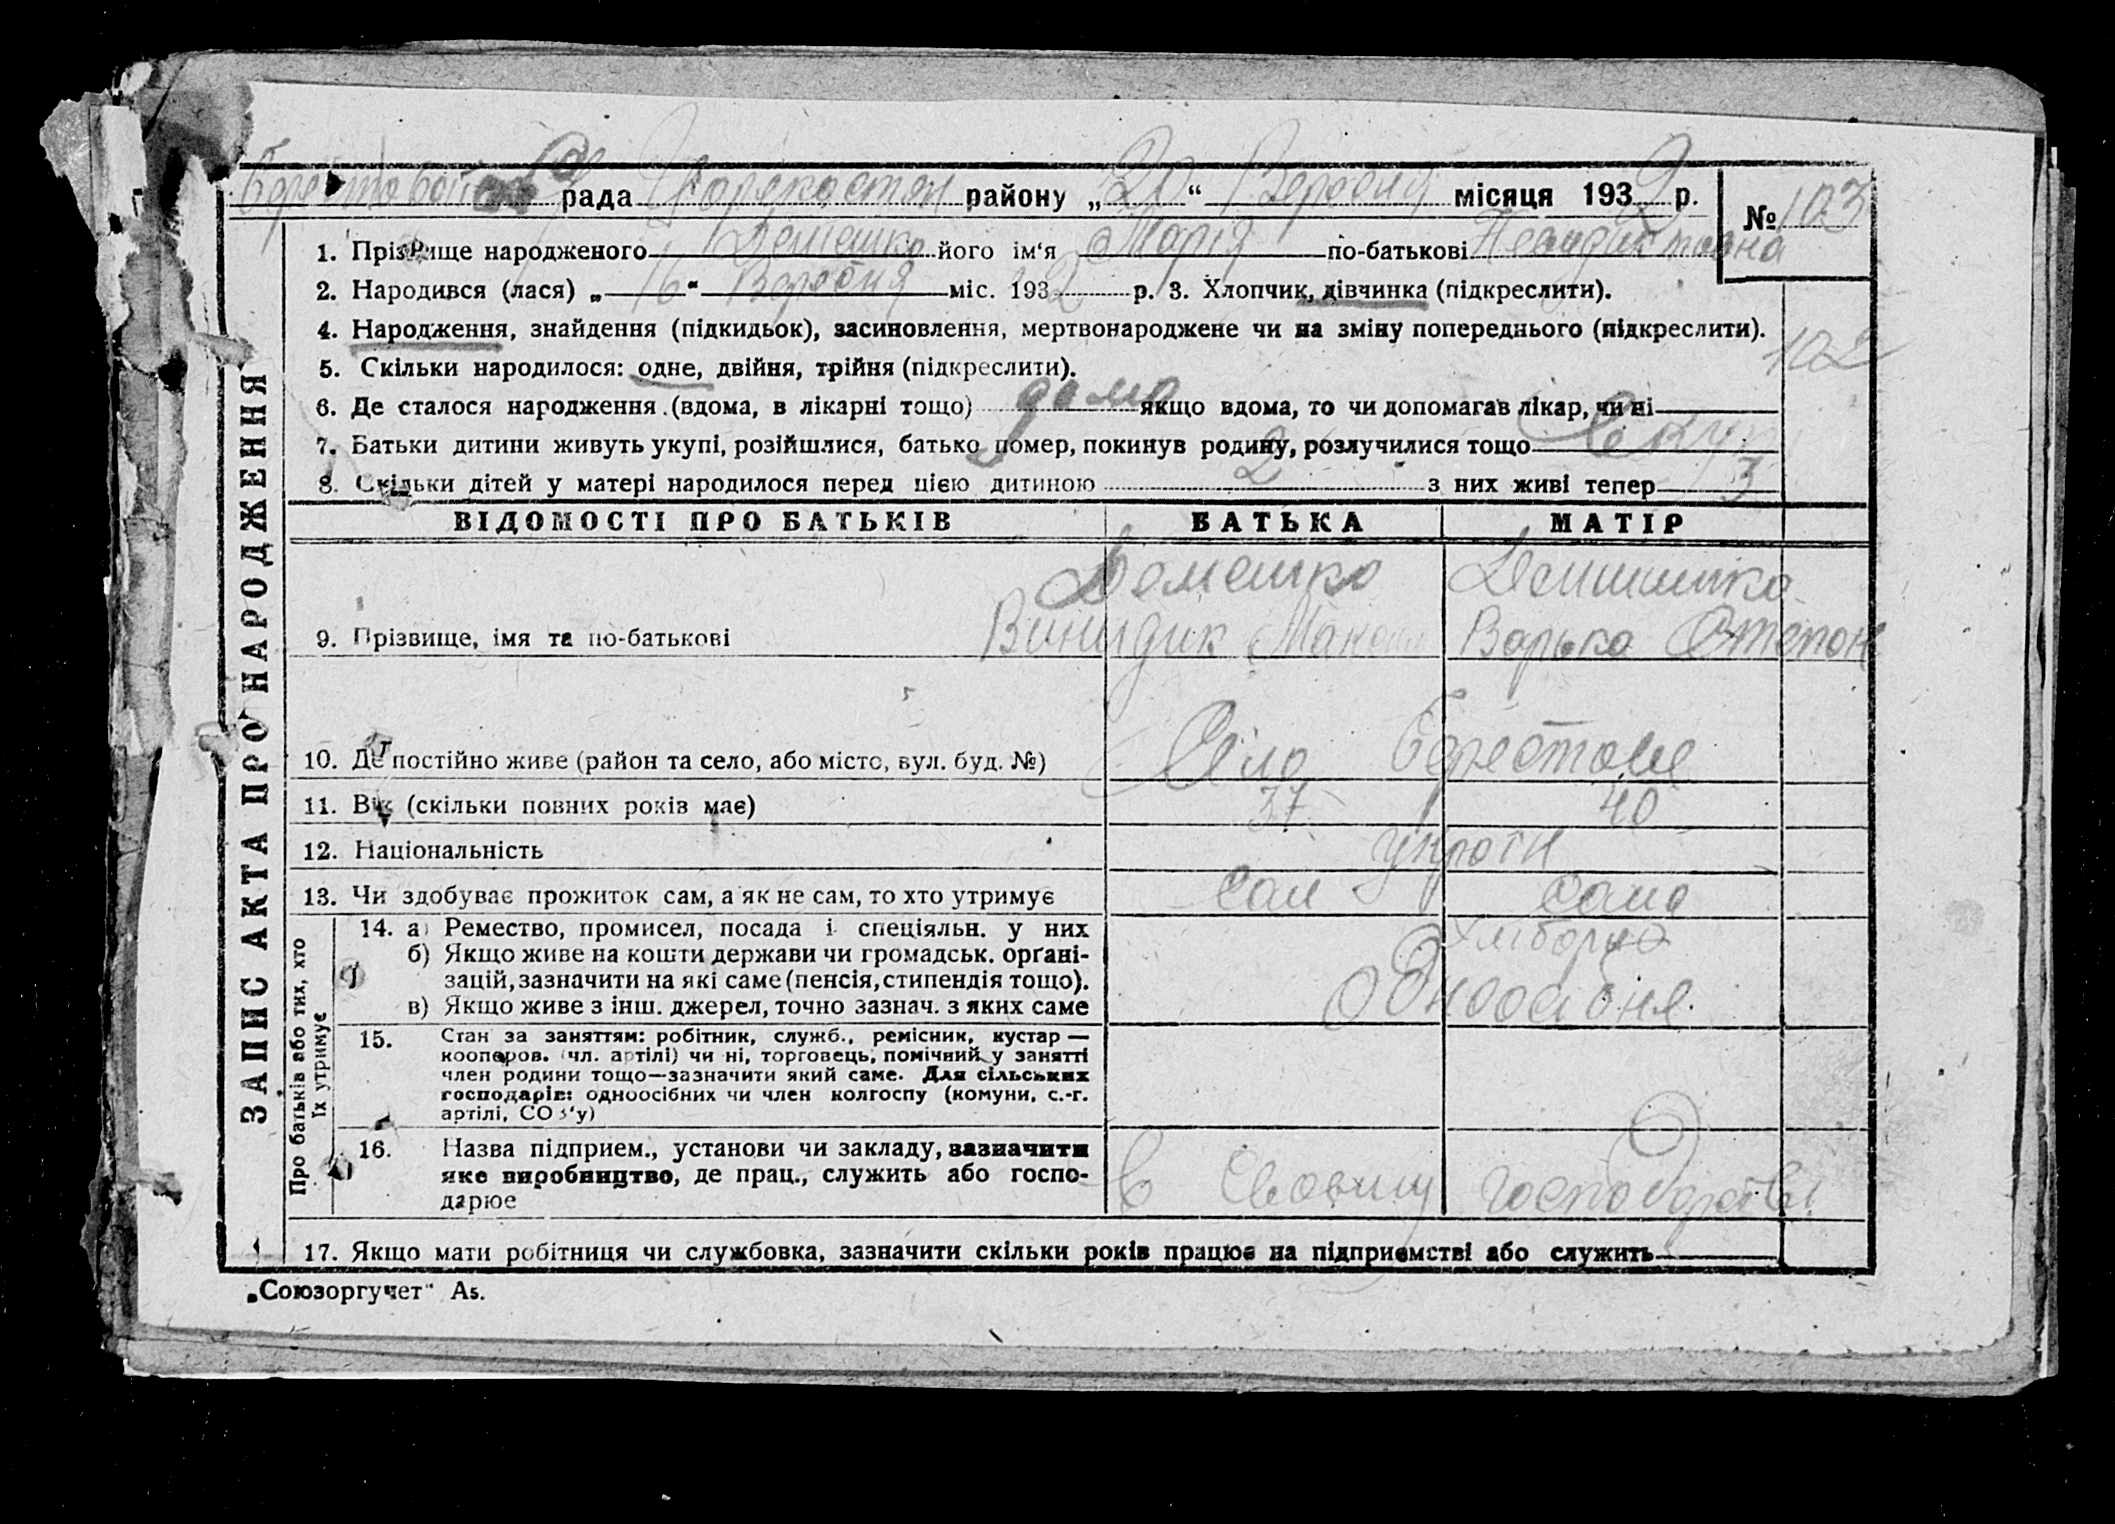 рада району „ 20 “ місяця 193 р. № 103
1. Прізвище народженого Демешко його ім‘я Марія по-батькові
2. Народився (лася) „ 16 “ міс. 193 2 р. 3. Хлопчик, дівчинка (підкреслити).
4. Народження, знайдення (підкидьок), засиновлення, мертвонароджене чи на зміну попереднього (підкреслити).
102
5. Скільки народилося: одне, двійня, трійня (підкреслити).
6. Де сталося народження (вдома, в лікарні тощо) дома якщо вдома, то чи допомагав лікар, чи ні
7. Батьки дитини живуть укупі, розійшлися, батько помер, покинув родину, розлучилися тощо
8. Скільки дітей у матері народилося перед цією дитиною 2 з них живі тепер 3
ЗАПИС АКТА ПРО НАРОДЖЕННЯ
ВІДОМОСТІ ПРО БАТЬКІВ БАТЬКА МАТІР
Демешко
9. Прізвище, імя та по-батькові Варька
10. Де постійно живе (район та село, або місто, вул. буд. №) Село Берестове
11. Вік (скільки повних років має) 37 40
12. Національність
13. Чи здобуває прожиток сам, а як не сам, то хто утримує сам сама
Про батьків або тих, хто
їх утримує
14. а) Ремество, промисел, посада і спеціяльн. у них
б) Якщо живе на кошти держави чи громадськ. орґані-
зацій, зазначити на які саме (пенсія, стипендія тощо).
в) Якщо живе з інш. джерел, точно зазнач. з яких саме
15. Стан за заняттям: робітник, служб., ремісник, кустар —
кооперов. (чл. артілі) чи ні, торговець, помічний у занятті
член родини тощо—зазначити який саме. Для сільських
господарів: одноосібних чи член колгоспу (комуни, с.-г.
артілі, СОЗ‘у)
16. Назва підприєм., установи чи закладу, зазначити
яке виробництво, де прац., служить або госпо-
дарює
в господарстві
17. Якщо мати робітниця чи службовка, зазначити скільки років працює на підприємстві або служить
„Союзоргучет“ А5.